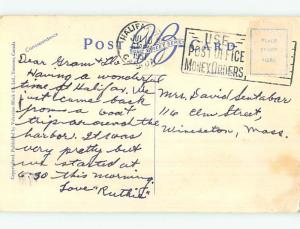 Correspondence
POST CARD
HALIFAX
USE
POST OFFICE
MONEY ORDERS.
PLACE
STAMP
HERE
Dear Gram &
Having a wonderful
time at Halifax. We
just came back
from a boat
trip around the
harbor. It was
very pretty but
we started at
6:30 this morning
Love "Ruthie"
Mrs. David Sentabar
116 Elm Street,
Winseton, Mass.